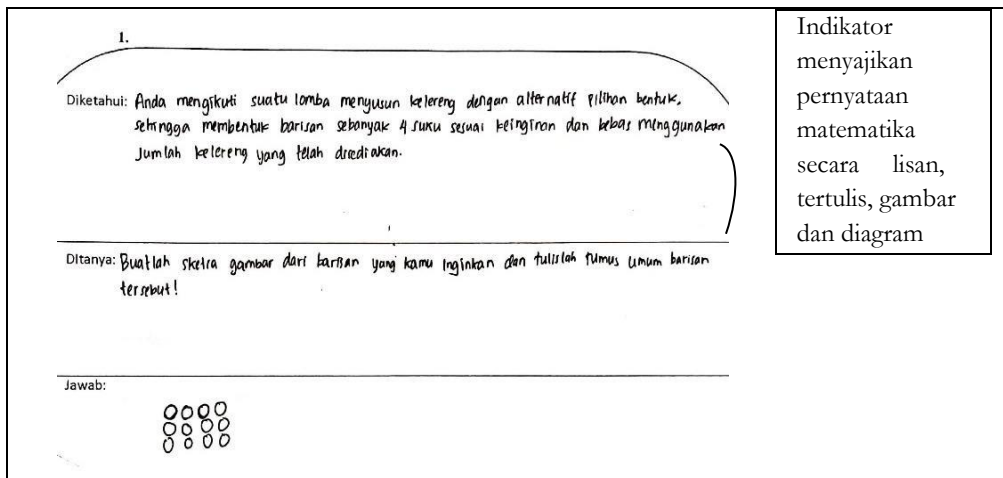 1.
Diketahui: Anda mengikuti suatu lomba menyusun kelereng dengan alternatif pilihan bentuk,
sehingga membentuk barisan sebanyak 4 suku sesuai keinginan dan bebas menggunakan
Jumlah kelereng yang telah disediakan.
Ditanya: Buatlah sketsa gambar dari barisan yang kamu inginkan dan tulislah rumus umum barisan
tersebut!
Jawab:
Indikator
menyajikan
pernyataan
matematika
secara lisan,
tertulis, gambar
dan diagram